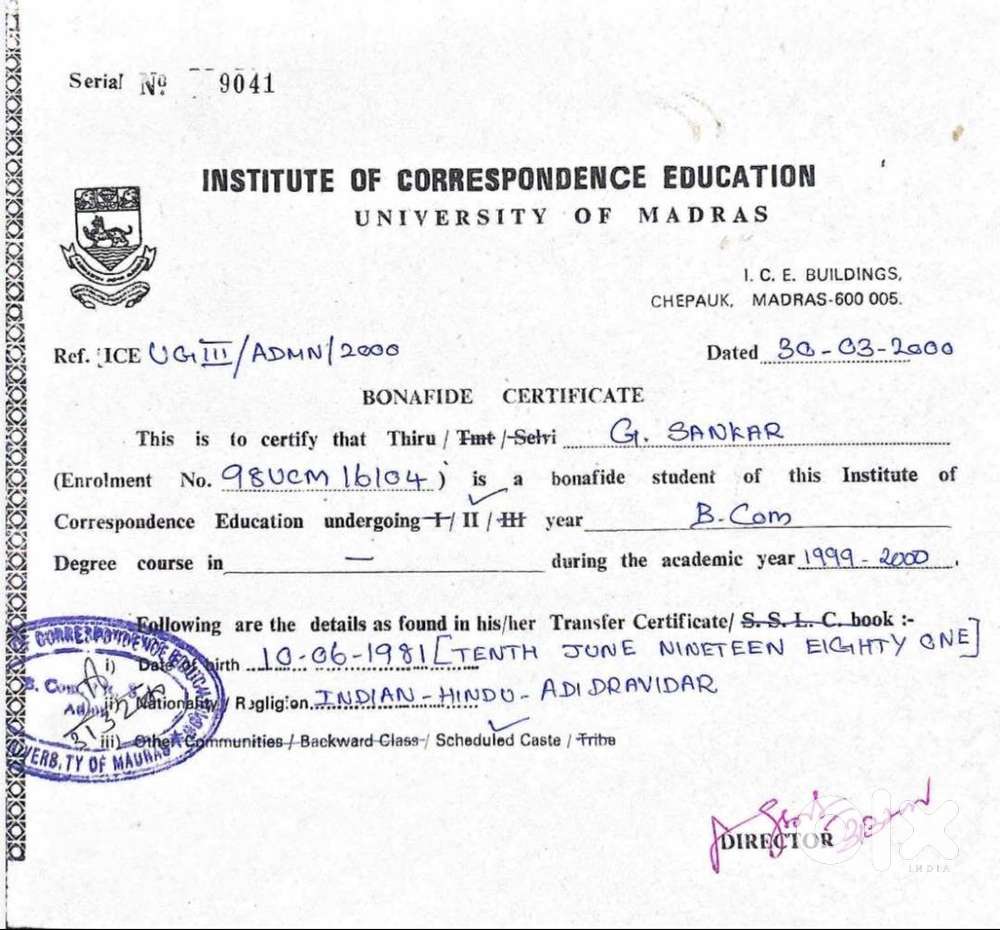 Serial Nº 9041
INSTITUTE OF CORRESPONDENCE EDUCATION
UNIVERSITY OF MADRAS
I. C. E. BUILDINGS,
CHEPAUK, MADRAS-600 005.
Ref. ICE UG III/ADMN/2000 Dated 30-03-2000
BONAFIDE CERTIFICATE
This is to certify that Thiru / Tmt / Selvi G. SANKAR
(Enrolment No. 98UCM 16104) is a bonafide student of this Institute of
Correspondence Education undergoing I / II / III year B.Com
Degree course in — during the academic year 1999-2000.
Following are the details as found in his/her Transfer Certificate/ S. S. L. C. book :-
i) Date of birth 10-06-1981 [TENTH JUNE NINETEEN EIGHTY ONE]
ii) Nationality / Regligion INDIAN-HINDU-ADI DRAVIDAR
iii) Other Communities / Backward Class / Scheduled Caste / Tribe
CORRESPONDENCE EDUCATION
B. Com
UNIVERSITY OF MADRAS
DIRECTOR
olx
INDIA